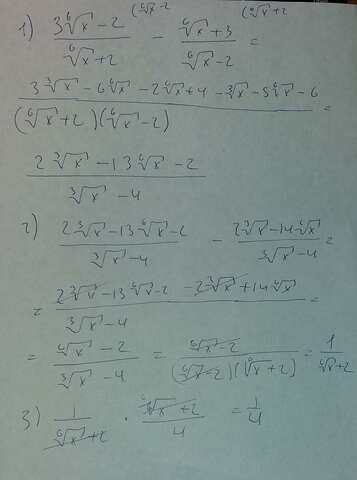 1) (3⁶√x - 2)/(⁶√x + 2) (⁶√x - 2 - (⁶√x + 3)/(⁶√x - 2) (⁶√x + 2 =
(3³√x - 6⁶√x - 2⁶√x + 4 - ³√x - 5⁶√x - 6)/((⁶√x + 2)(⁶√x - 2)) =
(2³√x - 13⁶√x - 2)/(³√x - 4)
2) (2³√x - 13⁶√x - 2)/(³√x - 4) - (2³√x - 14⁶√x)/(³√x - 4) =
= (2³√x - 13⁶√x - 2 - 2³√x + 14⁶√x)/(³√x - 4) =
= (⁶√x - 2)/(³√x - 4) = (⁶√x - 2)/((⁶√x - 2)(⁶√x + 2)) = 1/(⁶√x + 2)
3) 1/(⁶√x + 2) · (⁶√x + 2)/4 = 1/4